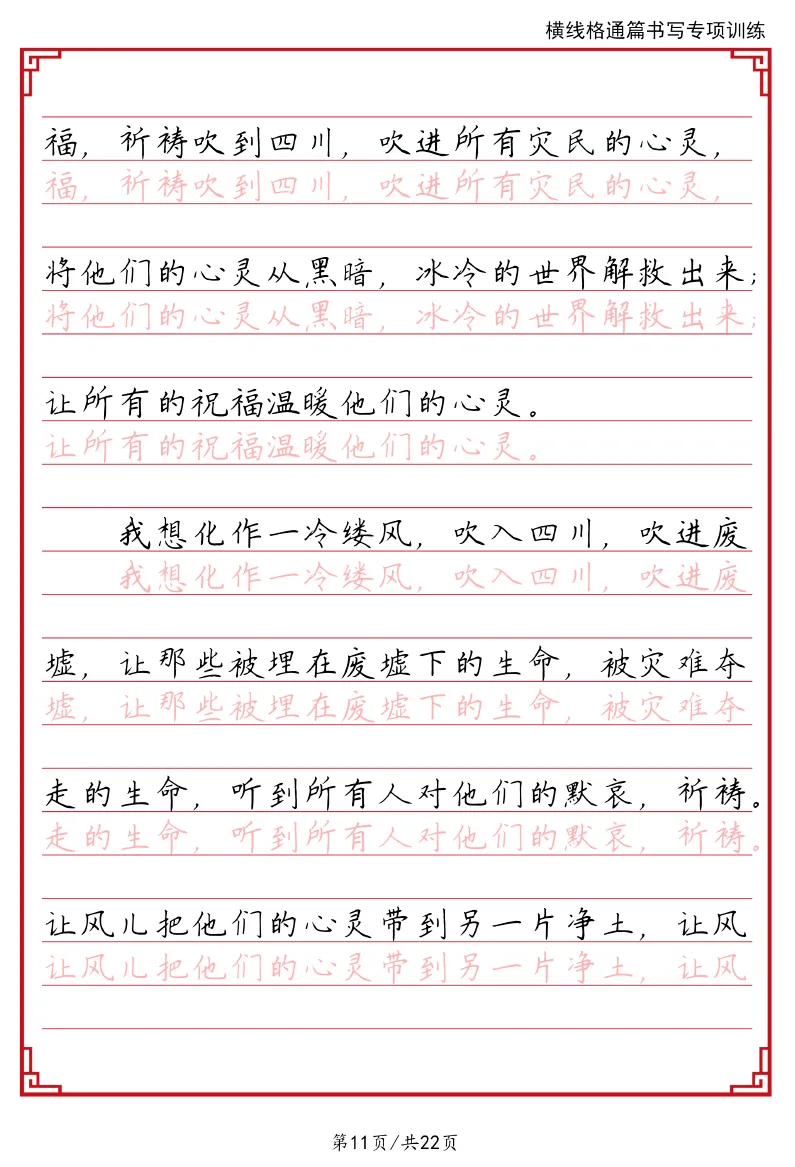 横线格通篇书写专项训练
福，祈祷吹到四川，吹进所有灾民的心灵，
福，祈祷吹到四川，吹进所有灾民的心灵，
将他们的心灵从黑暗，冰冷的世界解救出来；
将他们的心灵从黑暗，冰冷的世界解救出来；
让所有的祝福温暖他们的心灵。
让所有的祝福温暖他们的心灵。
我想化作一冷缕风，吹入四川，吹进废
我想化作一冷缕风，吹入四川，吹进废
墟，让那些被埋在废墟下的生命，被灾难夺
墟，让那些被埋在废墟下的生命，被灾难夺
走的生命，听到所有人对他们的默哀，祈祷。
走的生命，听到所有人对他们的默哀，祈祷。
让风儿把他们的心灵带到另一片净土，让风
让风儿把他们的心灵带到另一片净土，让风
第11页/共22页